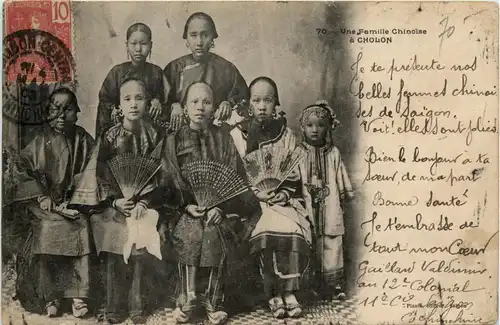 10
70 - Une Famille Chinoise
à CHOLON
70
Je te présente nos
belles femmes chinoi
ses de Saïgon.
Voit! elles sont jolies
Bien le bonjour à ta
sœur de ma part
Bonne Santé
Je t'embrasse de
tout mon Cœur
Gaillard
au 12e Colonial
11e Cie
à Cholon